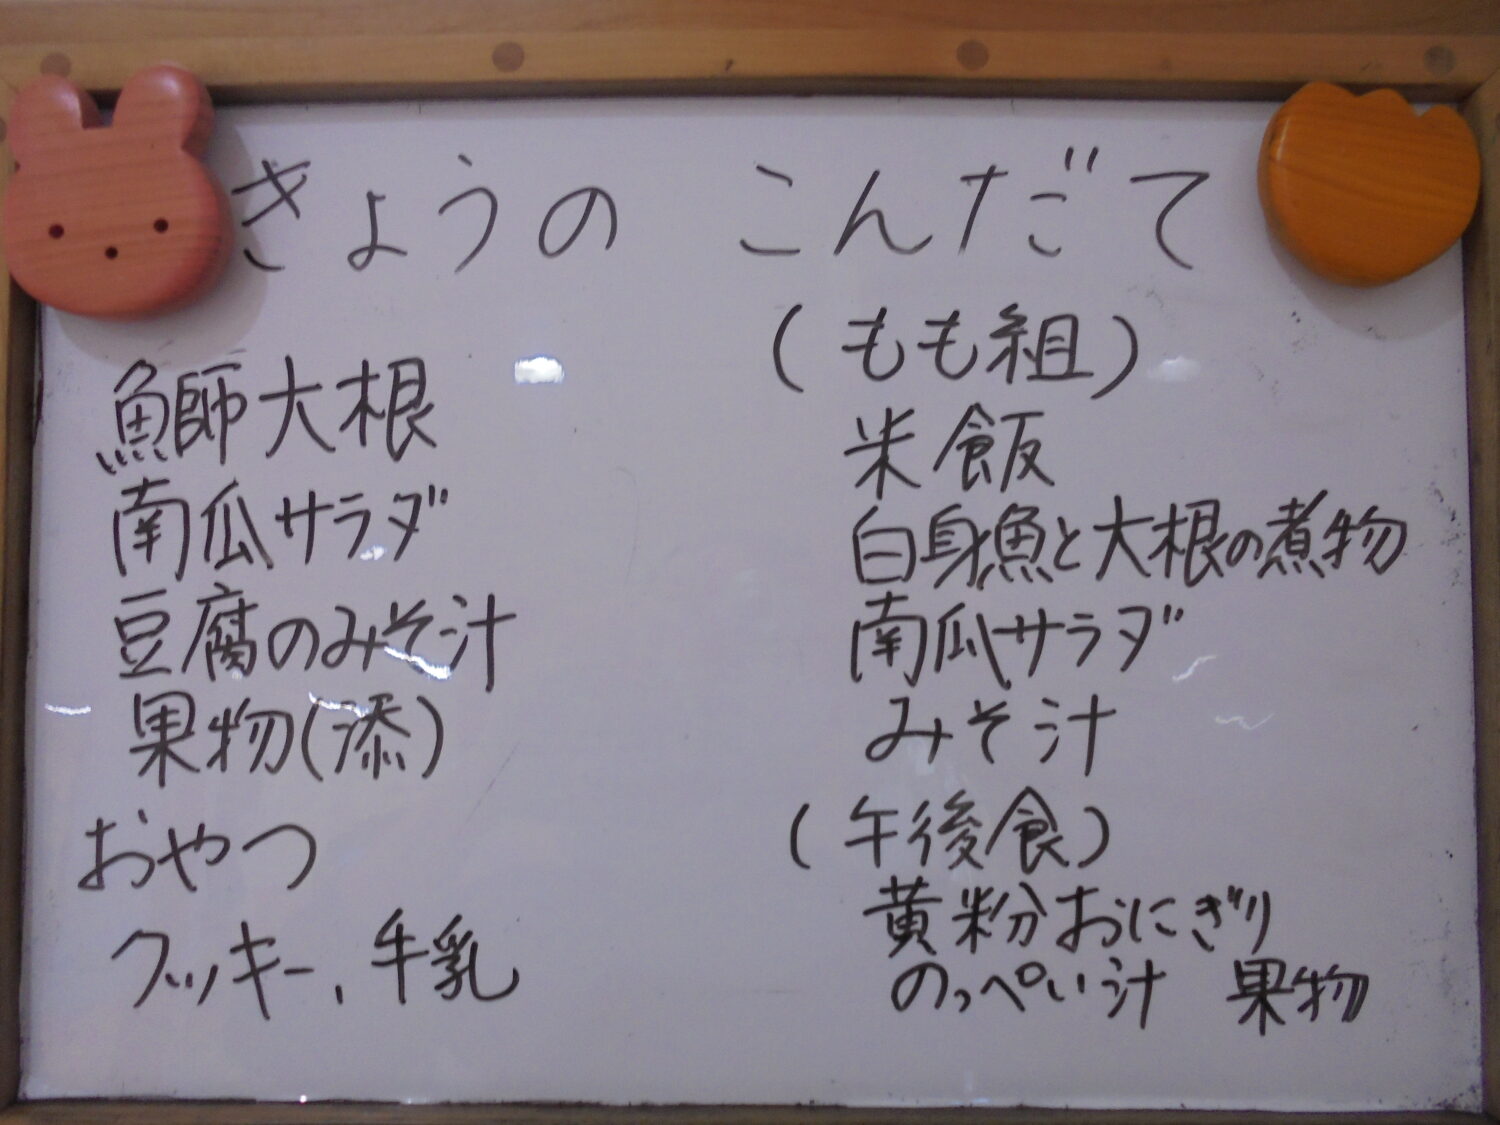 きょうの こんだて
鰤大根
南瓜サラダ
豆腐のみそ汁
果物(添)
おやつ
クッキー、牛乳
(もも組)
米飯
白身魚と大根の煮物
南瓜サラダ
みそ汁
(午後食)
黄粉おにぎり
のっぺい汁 果物